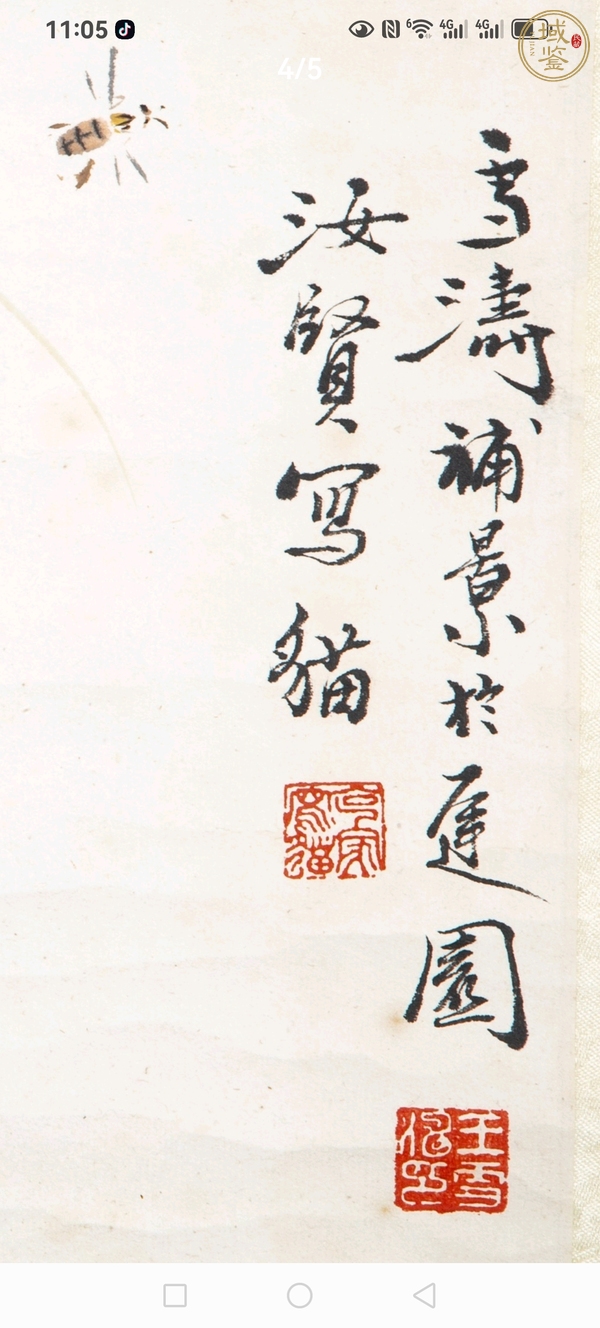 11:05
4/5
域鉴
雪濤補景於遲園
汝賢寫貓
王雪濤印